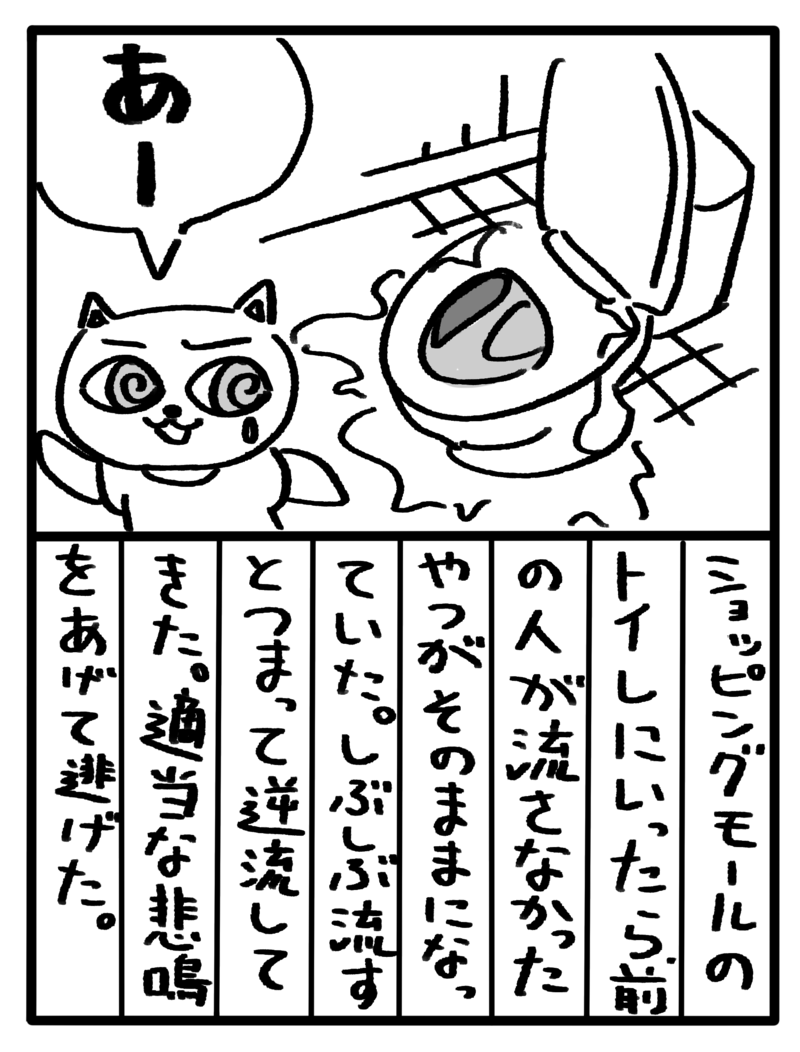 あー
ショッピングモールの
トイレにいったら前
の人が流さなかった
やつがそのままになっ
ていた。しぶしぶ流す
とつまって逆流して
きた。適当な悲鳴
をあげて逃げた。